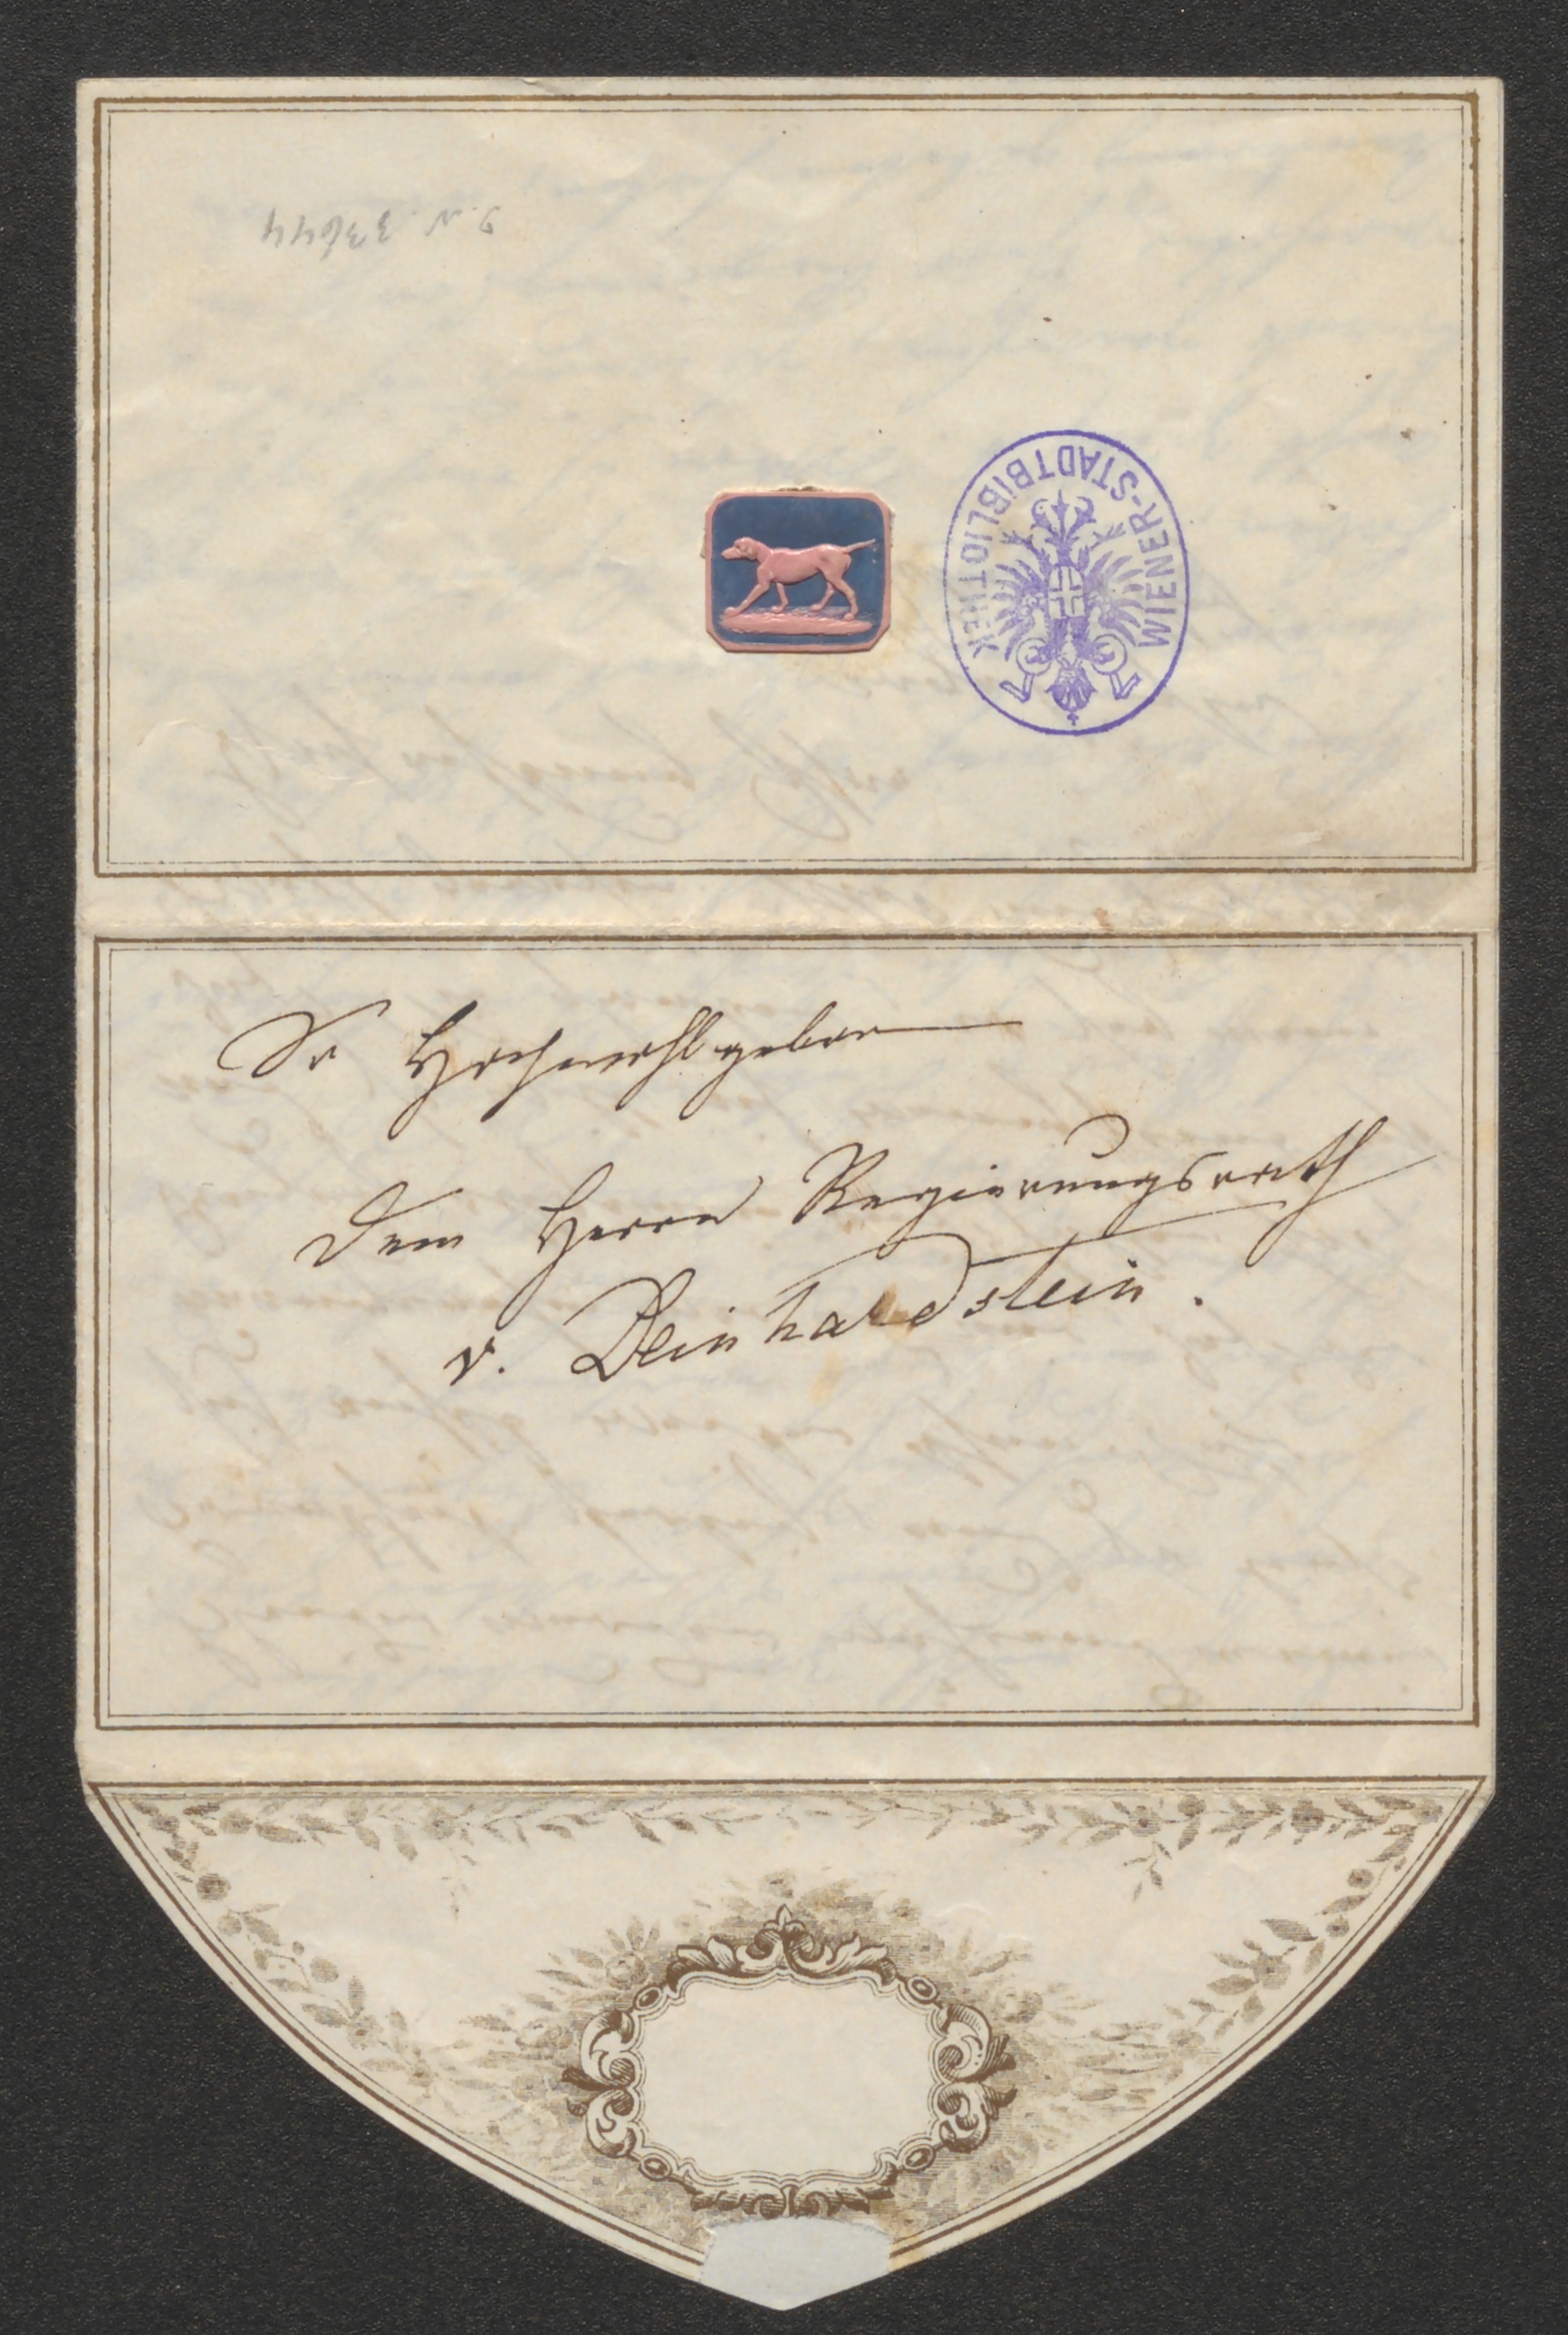 J. N. 33644
WIENER-STADTBIBLIOTHEK
Sr Hochwohlgeboren
Dem Herrn Regierungsrath
v. Deinhardstein.